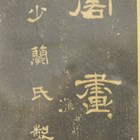 畫
少蘭氏製